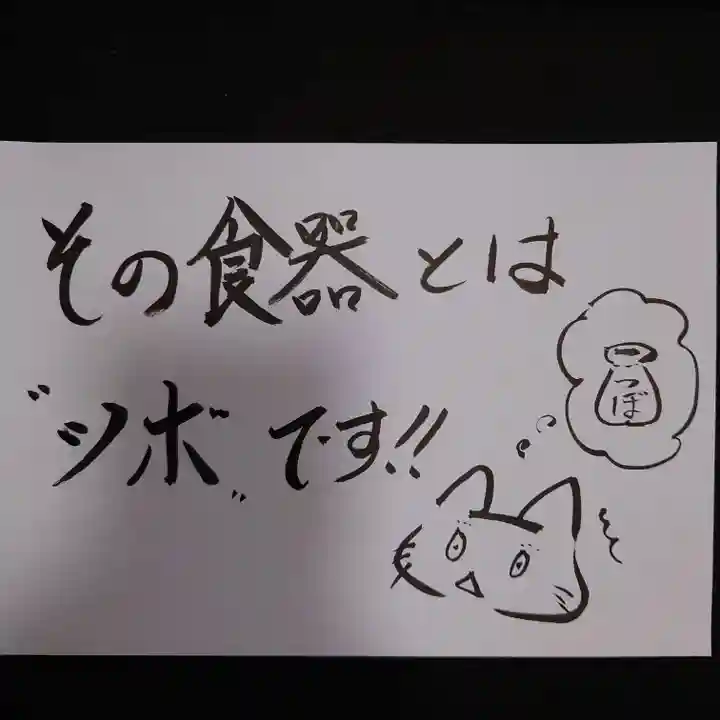 その食器とは
〝ツボ〟です!!
つぼ